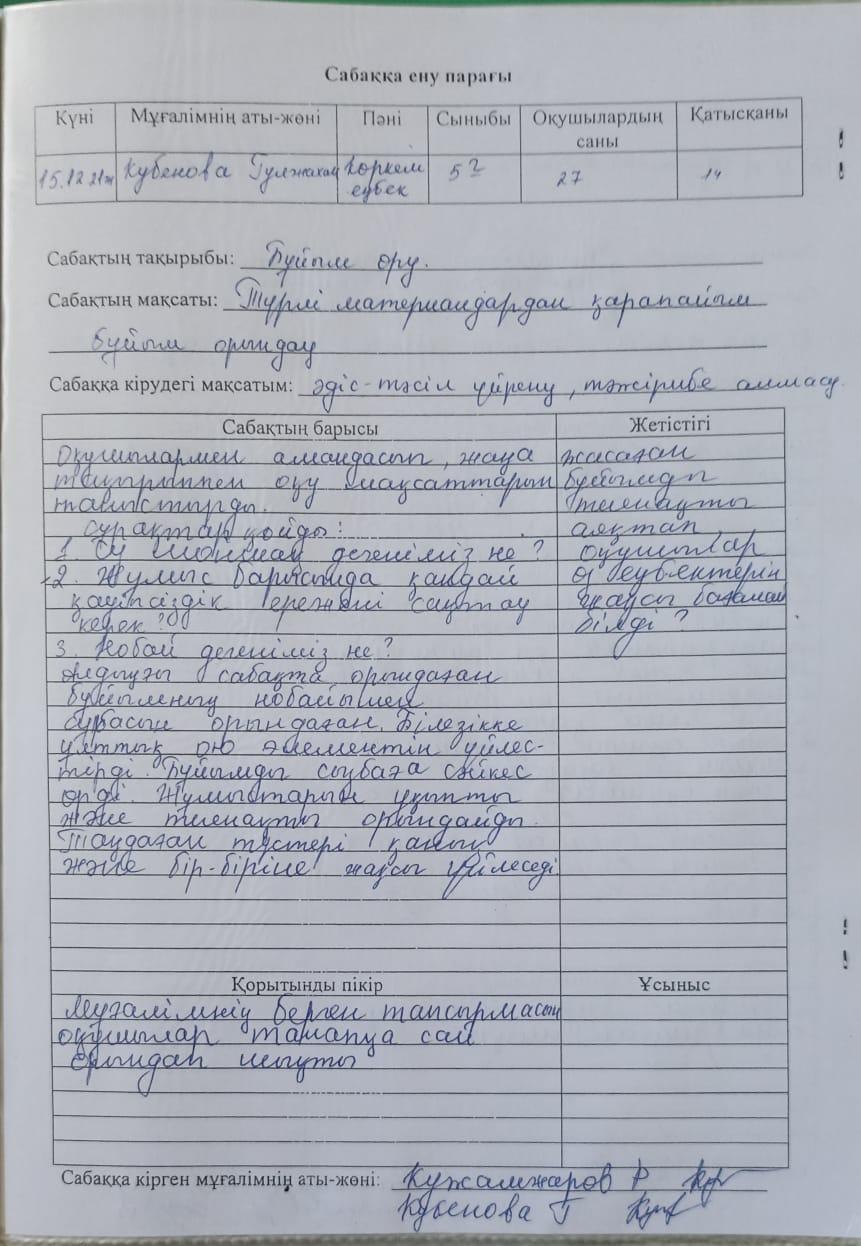 Сабаққа ену парағы
Күні Мұғалімнің аты-жөні Пәні Сыныбы Оқушылардың саны Қатысқаны
15.12.21ж Кубенова Гулжахан Көркем еңбек 5 27 14
Сабақтың тақырыбы: Бұйым өру.
Сабақтың мақсаты: Түрлі материалдардан қарапайым
бұйым орындау
Сабаққа кірудегі мақсатым: әдіс-тәсіл үйрену, тәжірибе алмасу.
Сабақтың барысы Жетістігі
Оқушылармен амандасып, жаңа жасаған
тақырыппен оқу мақсаттарын бұйымды
таныстырды. тиянақты
сұрақтар қойды: аяқтап
1. Бау дегеніміз не? оқушылар
2. Жұмыс барысында қандай өз еңбектерін
қауіпсіздік ережені сақтау жақсы бағалай
керек? білді?
3. Нобай дегеніміз не?
Алдыңғы сабақта орындаған
бұйымның нобайымен
сұлбасын орындаған. Білезікке
ұлттық ою элементін үйлес-
тірді. Бұйымды сұлбаға сәйкес
өрді. Жұмыстарын ұқыпты
және тиянақты орындайды.
Таңдаған түстері қанық
және бір-біріне жақсы үйлеседі
Қорытынды пікір Ұсыныс
Мұғалімнің берген тапсырмасын
оқушылар талапқа сай
орындап шықты
Сабаққа кірген мұғалімнің аты-жөні: Кужамжаров Р
Кубенова Г